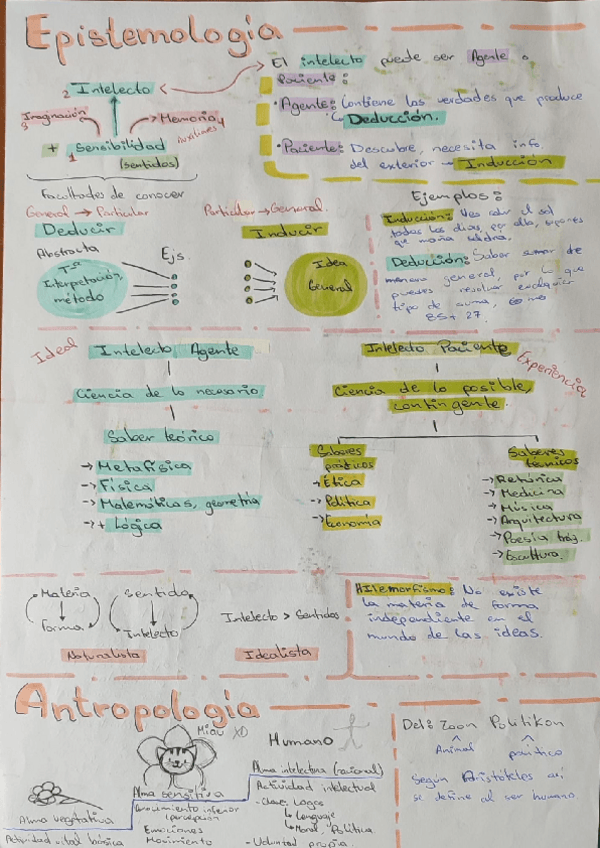 Epistemología
El intelecto puede ser Agente o
Paciente:
· Agente: Contiene las verdades que produce
Deducción.
· Paciente: Descubre, necesita info.
del exterior → Inducción
2 Intelecto
Imaginación
3
Memoria 4
Auxiliares
+ 1 Sensibilidad
(sentidos)
Facultades de conocer
General → Particular
Deducir
Abstracta
Ejs.
Interpretación,
método
Particular → General.
Inducir
Idea
General
Ejemplos:
Inducción: Ves salir el sol
todos los días, por ello, supones
que
Deducción: Saber sumar de
manera general, por lo que
puedes resolver cualquier
tipo de suma, como
85 + 27.
Ideal
Intelecto Agente
Ciencia de lo necesario
Saber teórico
→ Metafísica
→ Física
→ Matemáticas, geometría
→ + Lógica
Intelecto Paciente
Experiencia
Ciencia de lo posible,
contingente.
Saberes
prácticos
→ Ética
→ Política
→ Economía
Saberes
técnicos
→ Retórica
→ Medicina
→ Música
→ Arquitectura
→ Poesía trág.
→ Escultura.
Materia
Forma
Naturalista
Sentido
Intelecto
Intelecto > Sentidos
Idealista
Hilemorfismo: No existe
la materia de forma
independiente en el
mundo de las ideas.
Antropología
Miau XD
Alma vegetativa
Actividad vital básica
Alma sensitiva
Conocimiento inferior
(percepción)
Emociones
Movimiento
Humano
Alma intelectiva (racional)
Actividad intelectual
- Clave: Logos
↳ Lenguaje
↳ Moral, Política
- Voluntad propia.
Def: Zoon Politikon
Animal
político
Según Aristóteles así
se define al ser humano